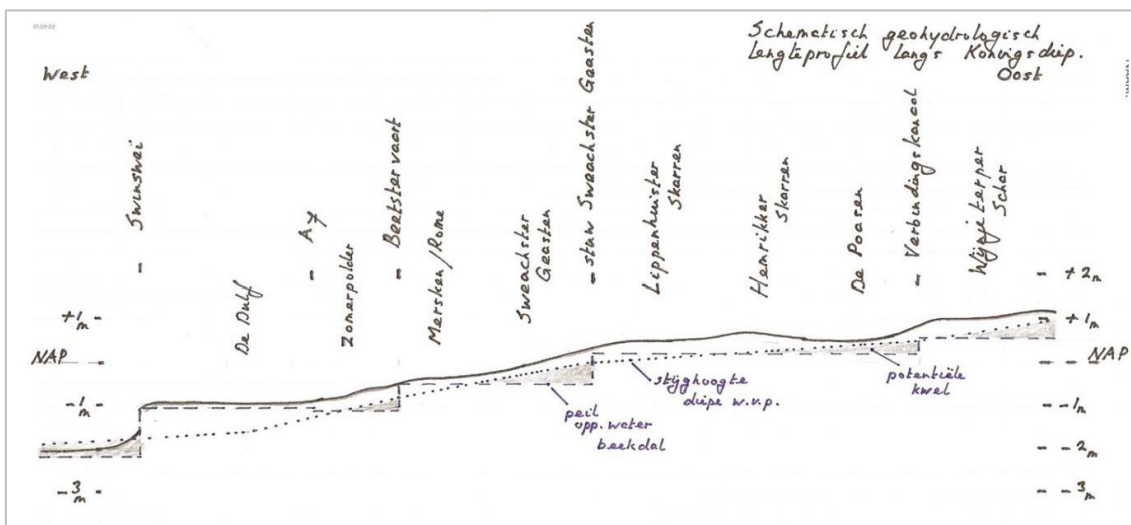 Schematisch geohydrologisch
lengteprofiel langs Koningsdiep.
West
Oost
NAAM:
Swynswei
De Dulf
Ay
Zomerpolder
Beetstervaart
Mersken/Rome
Sweachster
Geasten
stuw Sweachster Geasten
Lippenhuister
Skarren
Hemrikker
Skarren
De Poasen
Verbindingskanaal
Wijnjeterper
Schar
+1m
NAP
-1m
-3m
+2m
+1m
NAP
-1m
-2m
-3m
stijghoogte
diepe w.v.p.
peil
opp. water
beekdal
potentiële
kwel